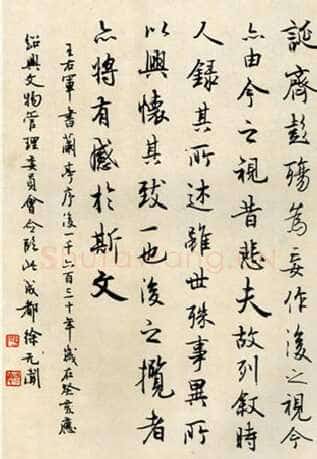 誕齊彭殤為妄作後之視今
亦由今之視昔悲夫故列敘時
人錄其所述雖世殊事異所
以興懷其致一也後之攬者
亦將有感於斯文
王右軍書蘭亭序後一千六百三十年歲在癸亥應
紹興文物管理委員會令臨此成都徐无聞